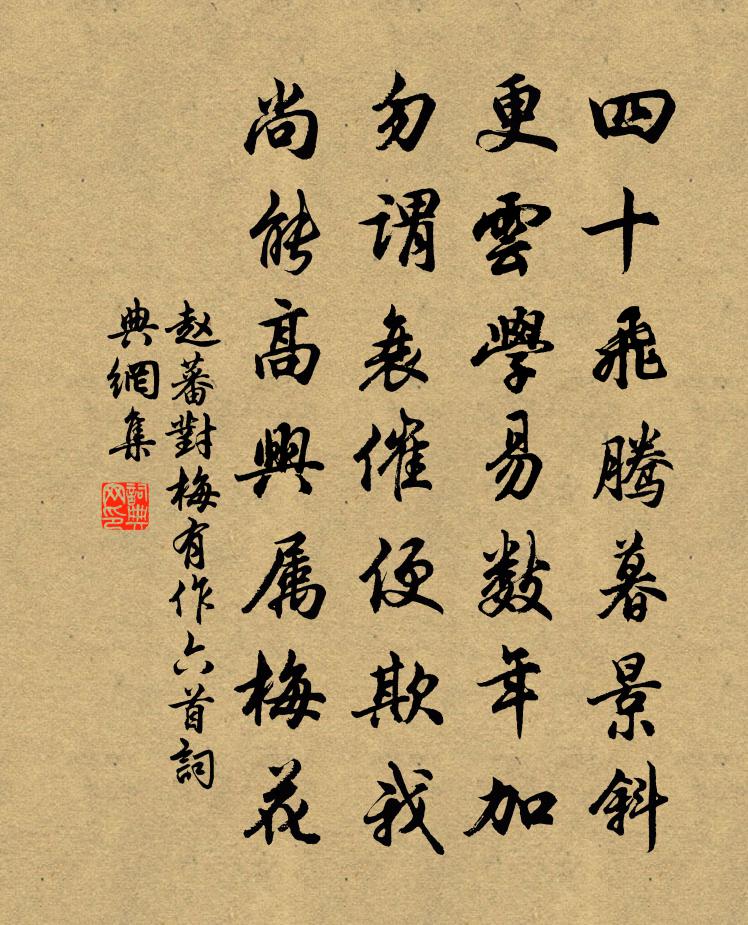 四十飛騰暮景斜
更雲學易數年加
勿謂衰催便欺我
尚能高興属梅花
赵蕃對梅有作六首詞
典網集
詞典网印